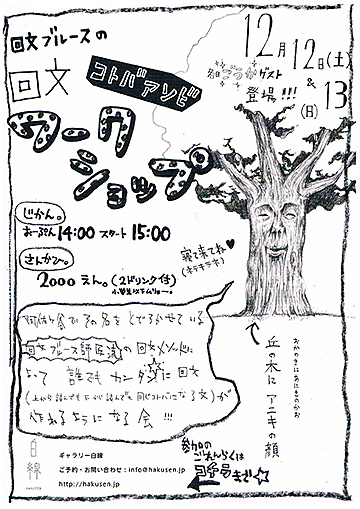 回文ブルースの
回文
コトバアソビ
ワーク
ショップ
12月12日(土)
&
13(日)
各日 ゲスト
登場!!!
じかん。
おーぷん 14:00 スタート 15:00
さんかひ。
2000えん。(2ドリンク付)
寝て来てね♥
(ネテキテネ)
阿佐ヶ谷でその名をとどろかせている
回文ブルース師匠の回文メソッドに
よって 誰でもカンタンに回文
(上から読んでも下から読んでも同じコトバになる文)が
作れるようになる会!!!
おかのきにあにきのかお
丘の木にアニキの顔
参加の
ごれんらくは
コチラまで☆
白線
HAKUSEN
ギャラリー白線
ご予約・お問い合わせ:info@hakusen.jp
http://hakusen.jp